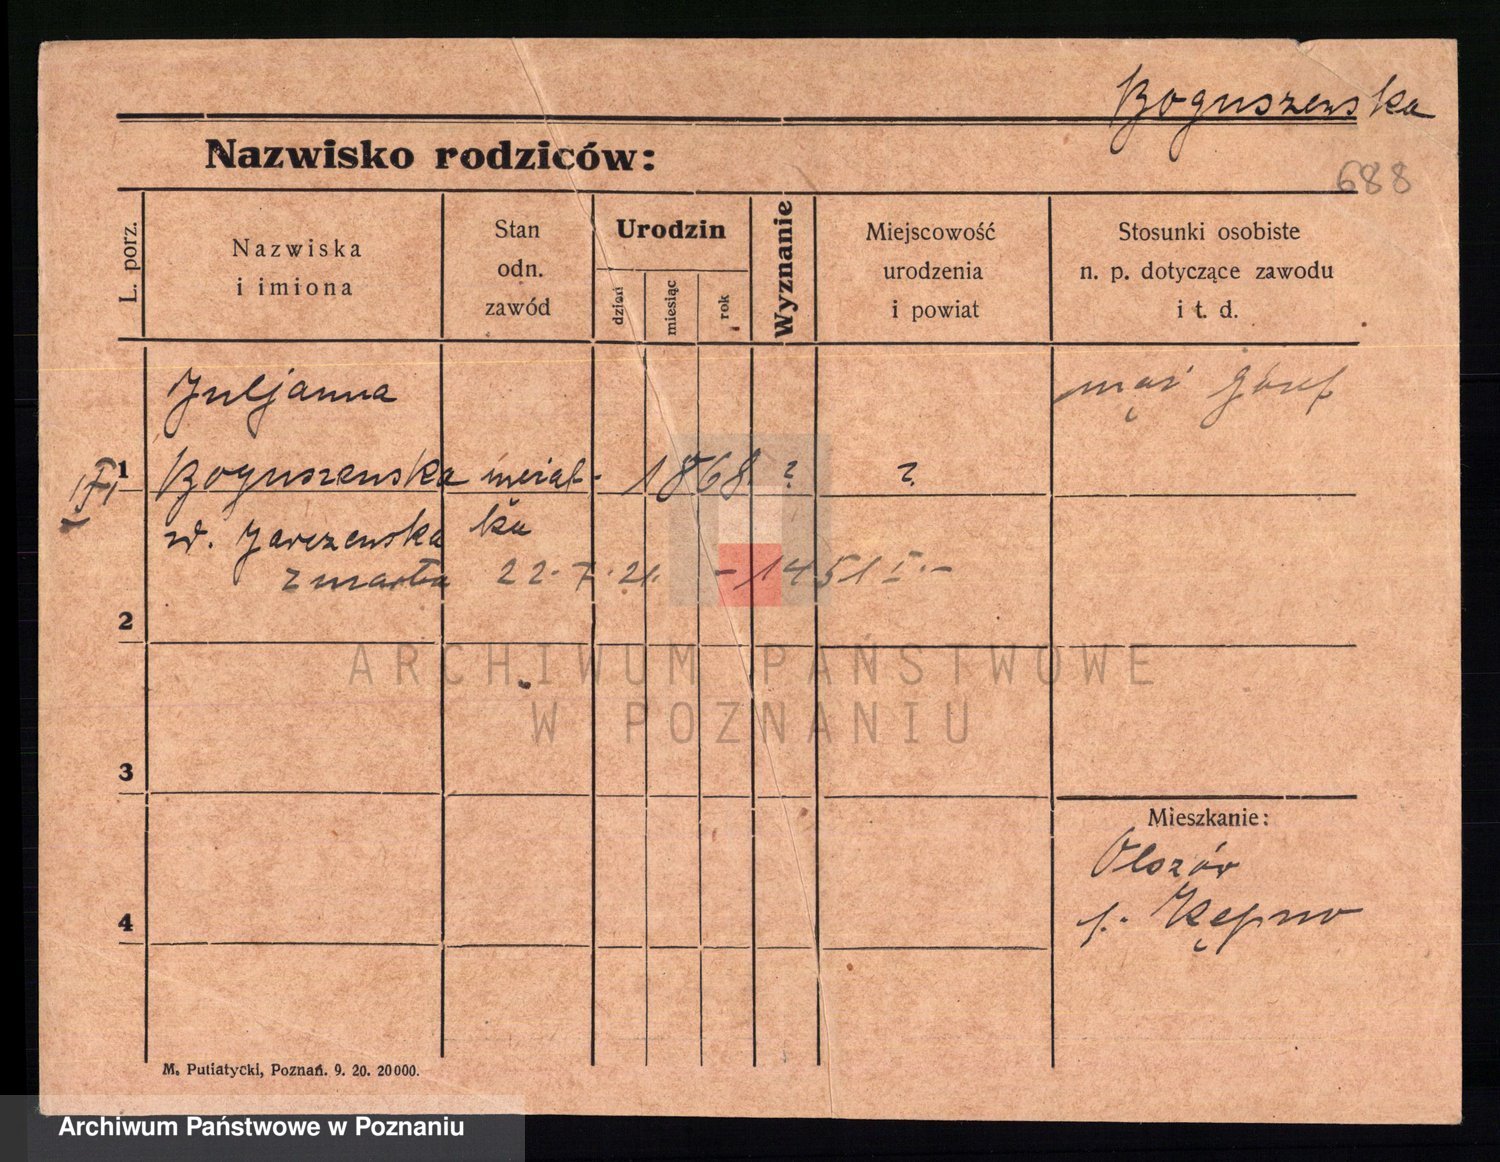 Boguszewska
Nazwisko rodziców:
688
L. porz.
Nazwiska
i imiona
Stan
odn.
zawód
Urodzin
dzień
miesiąc
rok
Wyznanie
Miejscowość
urodzenia
i powiat
Stosunki osobiste
n. p. dotyczące zawodu
i t. d.
Juljanna
mąż Józef
1 Boguszewska 1868 ? ?
zd. Jarczewska ka
zmarła 22.7.21. - 1451 I. -
2
ARCHIWUM PAŃSTWOWE
W POZNANIU
3
Mieszkanie:
Olszów
p. Kępno
4
M. Putiatycki, Poznań. 9. 20. 20000.
Archiwum Państwowe w Poznaniu